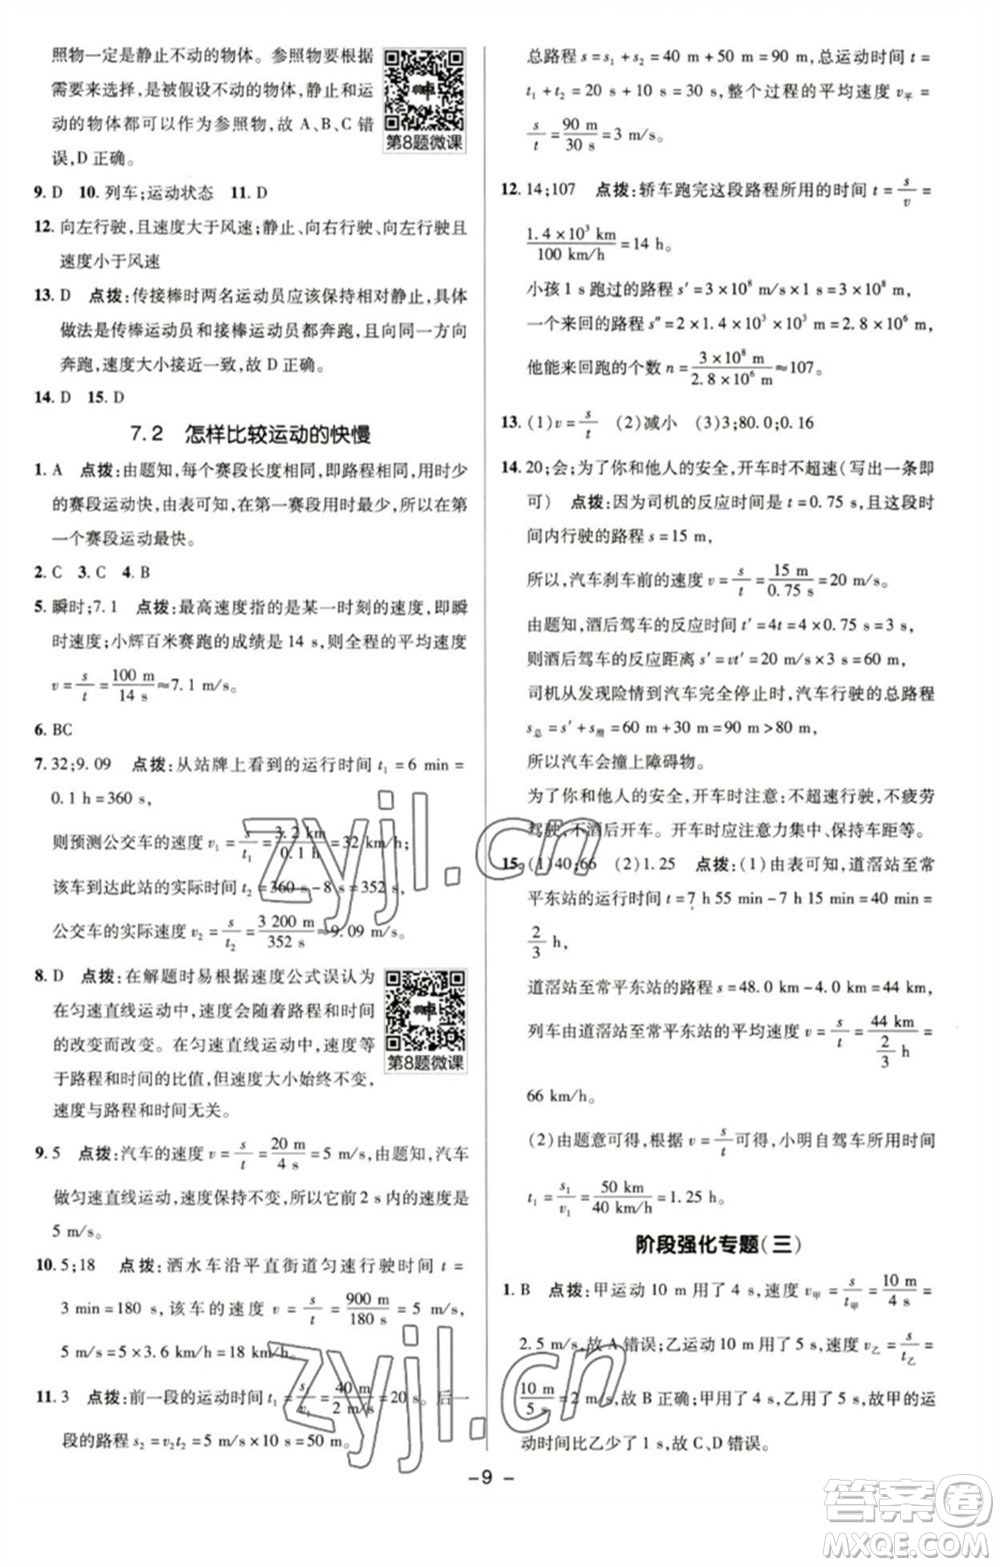 照物一定是静止不动的物体。参照物可以根据
需要来选择,是被假设不动的物体,静止和运
动的物体都可以作为参照物,故 A、B、C 错
误,D 正确。
第8题微课
9. D 10. 列车;运动状态 11. D
12. 向左行驶,且速度大于风速;静止、向右行驶、向左行驶且
速度小于风速
13. D 点拨:传接棒时两名运动员应该保持相对静止,具体
做法是传棒运动员和接棒运动员都奔跑,而且朝同一方向
奔跑,速度大小接近一致,故 D 正确。
14. D 15. D
7.2 怎样比较运动的快慢
1. A 点拨:由题知,每个赛段长度相同,即路程相同,用时少
的赛段运动快,由表可知,在第一赛段用时最少,所以在第
一个赛段运动最快。
2. C 3. C 4. B
5. 瞬时;7.1 点拨:最高速度指的是某一时刻的速度,即瞬
时速度;小辉百米赛跑的成绩是 14 s,则全程的平均速度
v = s/t = 100 m/14 s ≈7.1 m/s。
6. BC
7. 32;9.09 点拨:从站牌上看到的运行时间 t₁ = 6 min =
0.1 h = 360 s,
则预测公交车的速度 v₁ = s/t₁ = 3.2 km/0.1 h = 32 km/h;
该车到达此站的实际时间 t₂ = 360 s - 8 s = 352 s,
公交车的实际速度 v₂ = s/t₂ = 3 200 m/352 s ≈9.09 m/s。
8. D 点拨:在解题时易根据速度公式误认为
在匀速直线运动中,速度会随路程和时间
的改变而改变。在匀速直线运动中,速度等
于路程和时间的比值,但速度大小始终不变,
速度与路程和时间无关。
第8题微课
9. 5 点拨:汽车的速度 v = s/t = 20 m/4 s = 5 m/s,由题知,汽车
做匀速直线运动,速度保持不变,所以它前 2 s 内的速度是
5 m/s。
10. 5;18 点拨:洒水车沿平直街道匀速行驶时间 t =
3 min = 180 s,该车的速度 v = s/t = 900 m/180 s = 5 m/s,
5 m/s = 5×3.6 km/h = 18 km/h。
11. 3 点拨:前一段的运动时间 t₁ = s₁/v₁ = 40 m/2 m/s = 20 s。后一
段的路程 s₂ = v₂t₂ = 5 m/s×10 s = 50 m。
总路程 s = s₁ + s₂ = 40 m + 50 m = 90 m,总运动时间 t =
t₁ + t₂ = 20 s + 10 s = 30 s,整个过程的平均速度 v平 =
s/t = 90 m/30 s = 3 m/s。
12. 14;107 点拨:轿车跑完这段路程所用的时间 t = s/v =
1.4×10³ km/100 km/h = 14 h。
小孩 1 s 跑过的路程 s′ = 3×10⁸ m,
一个来回的路程 s″ = 2×1.4×10³×10³ m = 2.8×10⁶ m,
他能来回跑的个数 n = 3×10⁸ m/2.8×10⁶ m ≈107。
13. (1)v = s/t (2)减小 (3)3;80.0;0.16
14. 20;会;为了你和他人的安全,开车时不超速(写出一条即
可) 点拨:因为司机的反应时间是 t = 0.75 s,这段时
间内行驶的路程 s = 15 m,
所以,汽车刹车前的速度 v = s/t = 15 m/0.75 s = 20 m/s。
由题知,酒后驾车的反应时间 t′ = 4t = 4×0.75 s = 3 s,
则酒后驾车的反应距离 s′ = vt′ = 20 m/s×3 s = 60 m,
司机从发现险情到汽车完全停止时,汽车行驶的总路程
s总 = s′ + s滑 = 60 m + 30 m = 90 m > 80 m,
所以汽车会撞上障碍物。
为了你和他人的安全,开车时注意:不超速行驶,不疲劳
驾驶,不酒后开车。开车时应注意力集中、保持车距等。
15. (1)40;66 (2)1.25 点拨:(1)由表可知,道滘站至常
平东站的运行时间 t = 7 h 55 min - 7 h 15 min = 40 min =
2/3 h,
道滘站至常平东站的路程 s = 48.0 km - 4.0 km = 44 km,
列车由道滘站至常平东站的平均速度 v = s/t = 44 km/(2/3 h) =
66 km/h。
(2)由题意可得,根据 v = s/t 可得,小明自驾车所用时间
t₁ = s₁/v₁ = 50 km/40 km/h = 1.25 h。
阶段强化专题(三)
1. B 点拨:甲运动 10 m 用了 4 s,速度 v甲 = s/t甲 = 10 m/4 s =
2.5 m/s,故 A 错误;乙运动 10 m 用了 5 s,速度 v乙 = s/t乙 =
10 m/5 s = 2 m/s,故 B 正确;甲用了 4 s,乙用了 5 s,故甲的运
动时间比乙少了 1 s,故 C、D 错误。
- 9 -
zyjl.cn
zyjl.cn
答案圈
MXQE.COM